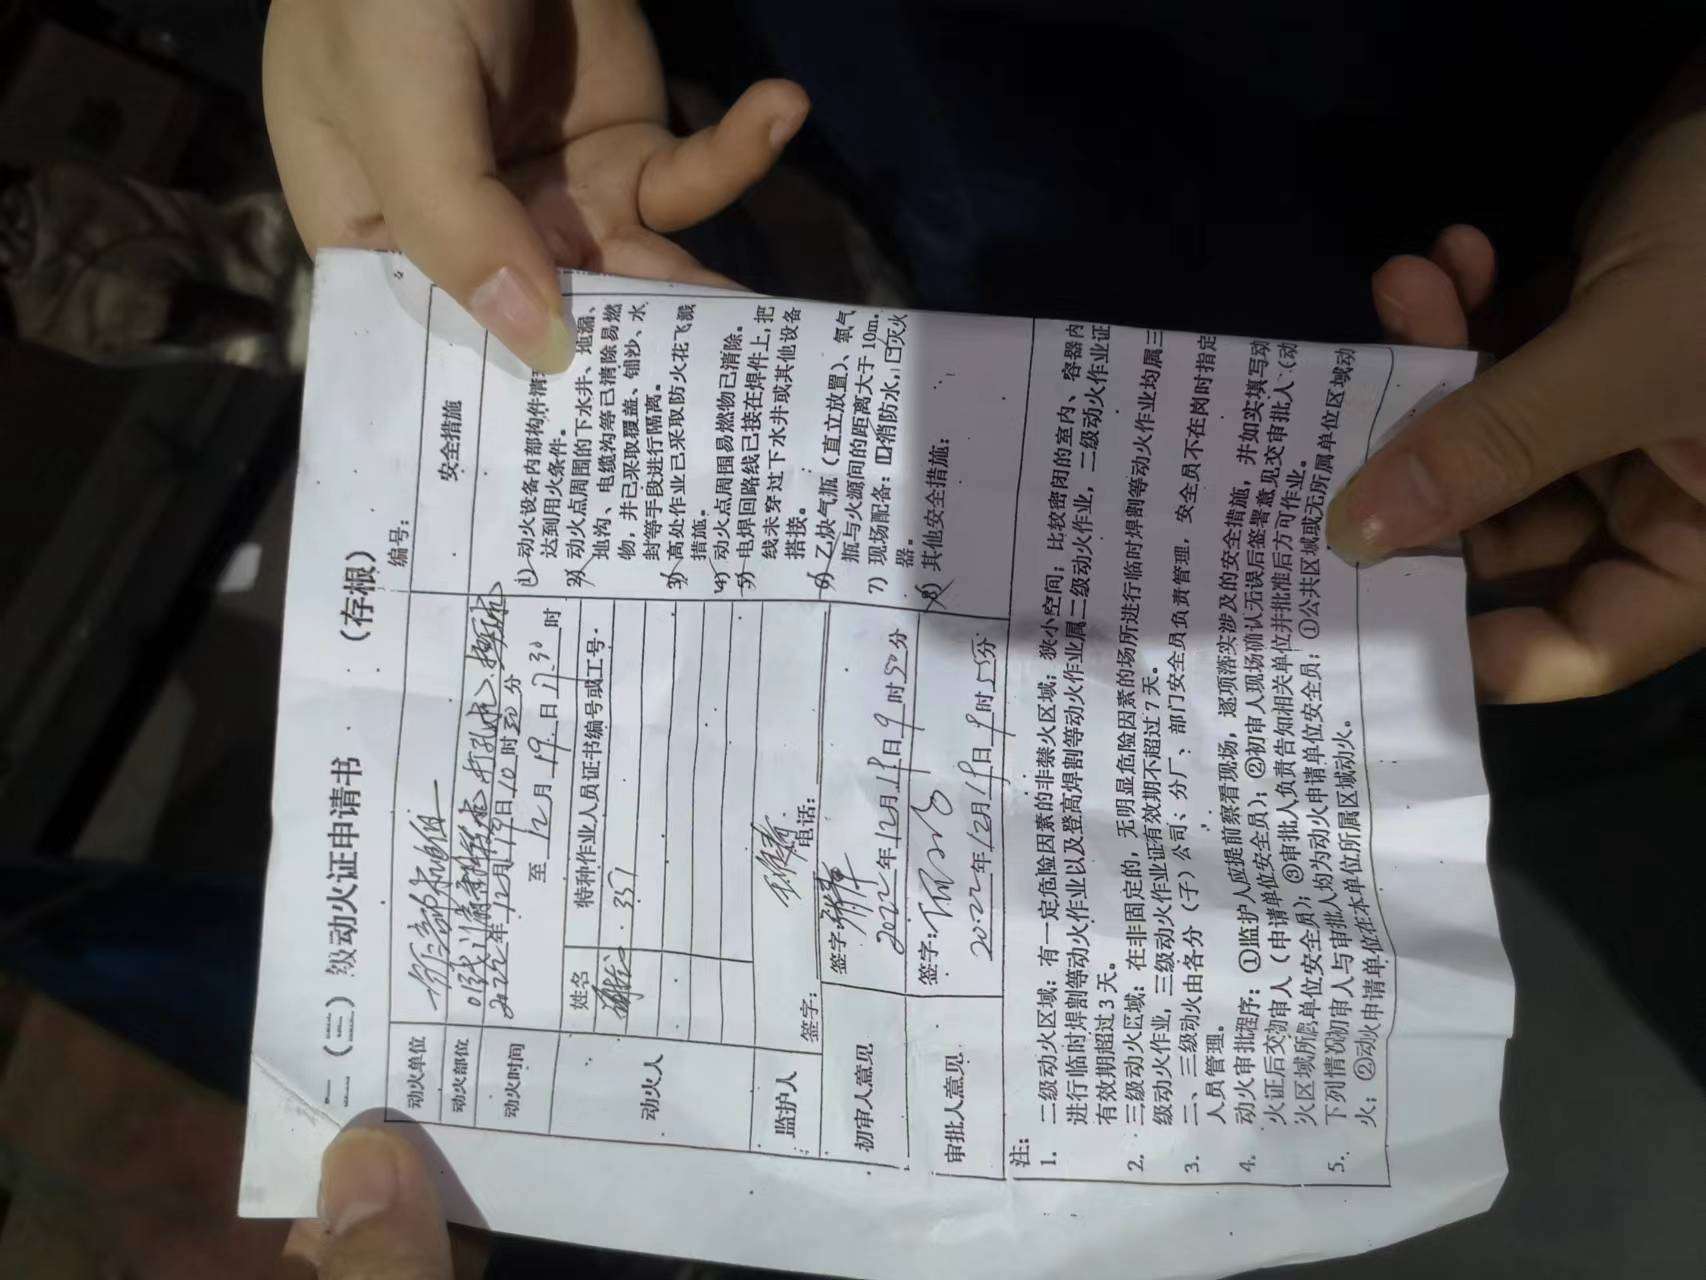 二（三）级动火证申请书　（存根）
编号：
动火单位
动火部位
动火时间
2022年12月19日10时30分
至 12月19日17.30时
安全措施
动火人
姓名
特种作业人员证书编号或工号
357
监护人
签字：
电话：
初审人意见
签字：
2022年12月19日9时50分
审批人意见
签字：
2022年12月19日9时55分
1）动火设备内部构件清
达到用火条件。
2）动火点周围的下水井、地漏、
地沟、电缆沟等已清除易燃
物，并已采取覆盖、铺沙、水
封等手段进行隔离。
3）高处作业已采取防火花飞溅
措施。
4）动火点周围易燃物已清除。
5）电焊回路线已接在焊件上，把
线未穿过下水井或其他设备
搭接。
6）乙炔气瓶（直立放置）、氧气
瓶与火源间的距离大于 10m。
7）现场配备：口消防水，口灭火
器。
8）其他安全措施：
注：
1. 二级动火区域：有一定危险因素的非禁火区域；狭小空间；比较密闭的室内、容器内
进行临时焊割等动火作业以及登高焊割等动火作业属二级动火作业，二级动火作业证
有效期超过 3 天。
2. 三级动火区域：在非固定的，无明显危险因素的场所进行临时焊割等动火作业均属三
级动火作业，三级动火作业证有效期不超过 7 天。
3. 二、三级动火由各分（子）公司、分厂、部门安全员负责管理，安全员不在岗时指定
人员管理。
4. 动火审批程序：①监护人应提前察看现场，逐项落实涉及的安全措施，并如实填写动
火证后交初审人（申请单位安全员）；②初审人现场确认无误后签署意见交审批人（动
火区域所属单位安全员）；③审批人负责告知相关单位并批准后方可作业。
5. 下列情况初审人与审批人均为动火申请单位安全员：①公共区域或无所属单位区域动
火；②动火申请单位在本单位所属区域动火。